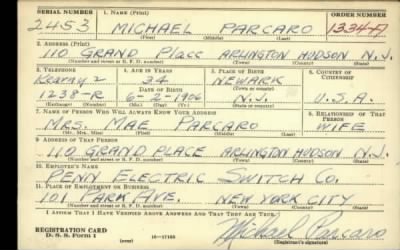 SERIAL NUMBER 1. NAME (Print) ORDER NUMBER
2453 MICHAEL PARCARO 1334-A
(First) (Middle) (Last)
2. ADDRESS (Print)
110 GRAND PLACE ARLINGTON HUDSON N.J.
(Number and street or R. F. D. number) (Town) (County) (State)
3. TELEPHONE 4. AGE IN YEARS 5. PLACE OF BIRTH 6. COUNTRY OF CITIZENSHIP
Kearny 2 34 NEWARK
DATE OF BIRTH (Town or county)
1238-R 6-2-1906 N.J. U.S.A.
(Exchange) (Number) (Mo.) (Day) (Yr.) (State or country)
7. NAME OF PERSON WHO WILL ALWAYS KNOW YOUR ADDRESS 8. RELATIONSHIP OF THAT PERSON
MRS. MAE PARCARO WIFE
(Mr., Mrs., Miss) (First) (Middle) (Last)
9. ADDRESS OF THAT PERSON
110 GRAND PLACE ARLINGTON HUDSON N.J.
(Number and street or R. F. D. number) (Town) (County) (State)
10. EMPLOYER'S NAME
PENN ELECTRIC SWITCH CO.
11. PLACE OF EMPLOYMENT OR BUSINESS
101 PARK AVE. NEW YORK CITY
(Number and street or R. F. D. number) (Town) (County) (State)
I AFFIRM THAT I HAVE VERIFIED ABOVE ANSWERS AND THAT THEY ARE TRUE.
REGISTRATION CARD
D. S. S. Form 1 (over) 16-17105 Michael Parcaro
(Registrant's signature)